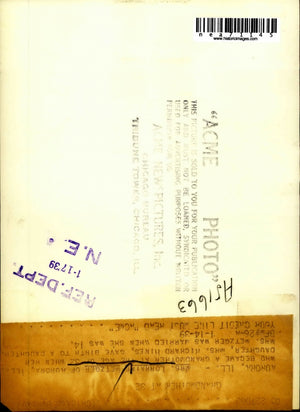 nea71145
www.historicimages.com
"ACME PHOTO"
THIS PICTURE IS SOLD TO YOU FOR YOUR PUBLICATION
ONLY AND MUST NOT BE LOANED, SYNDICATED OR
USED FOR ADVERTISING PURPOSES WITHOUT WRITTEN
ACME NEWSPICTURES, INC.
CHICAGO BUREAU
TRIBUNE TOWER, CHICAGO, ILL.
REF. DEPT.
1-17-39
N.E.A
A51663
GRANDMOTHER AT 32
AURORA, ILL.
WHO BECAME A GRANDMOTHER AT THE AGE OF 32 WHEN HER
DAUGHTER, MRS. RICHARD HINES, GAVE BIRTH TO A DAUGHTER
MRS. METZGER WAS MARRIED WHEN SHE WAS 14.
1-14-39
YOUR CREDIT LINE MUST READ "ACME"